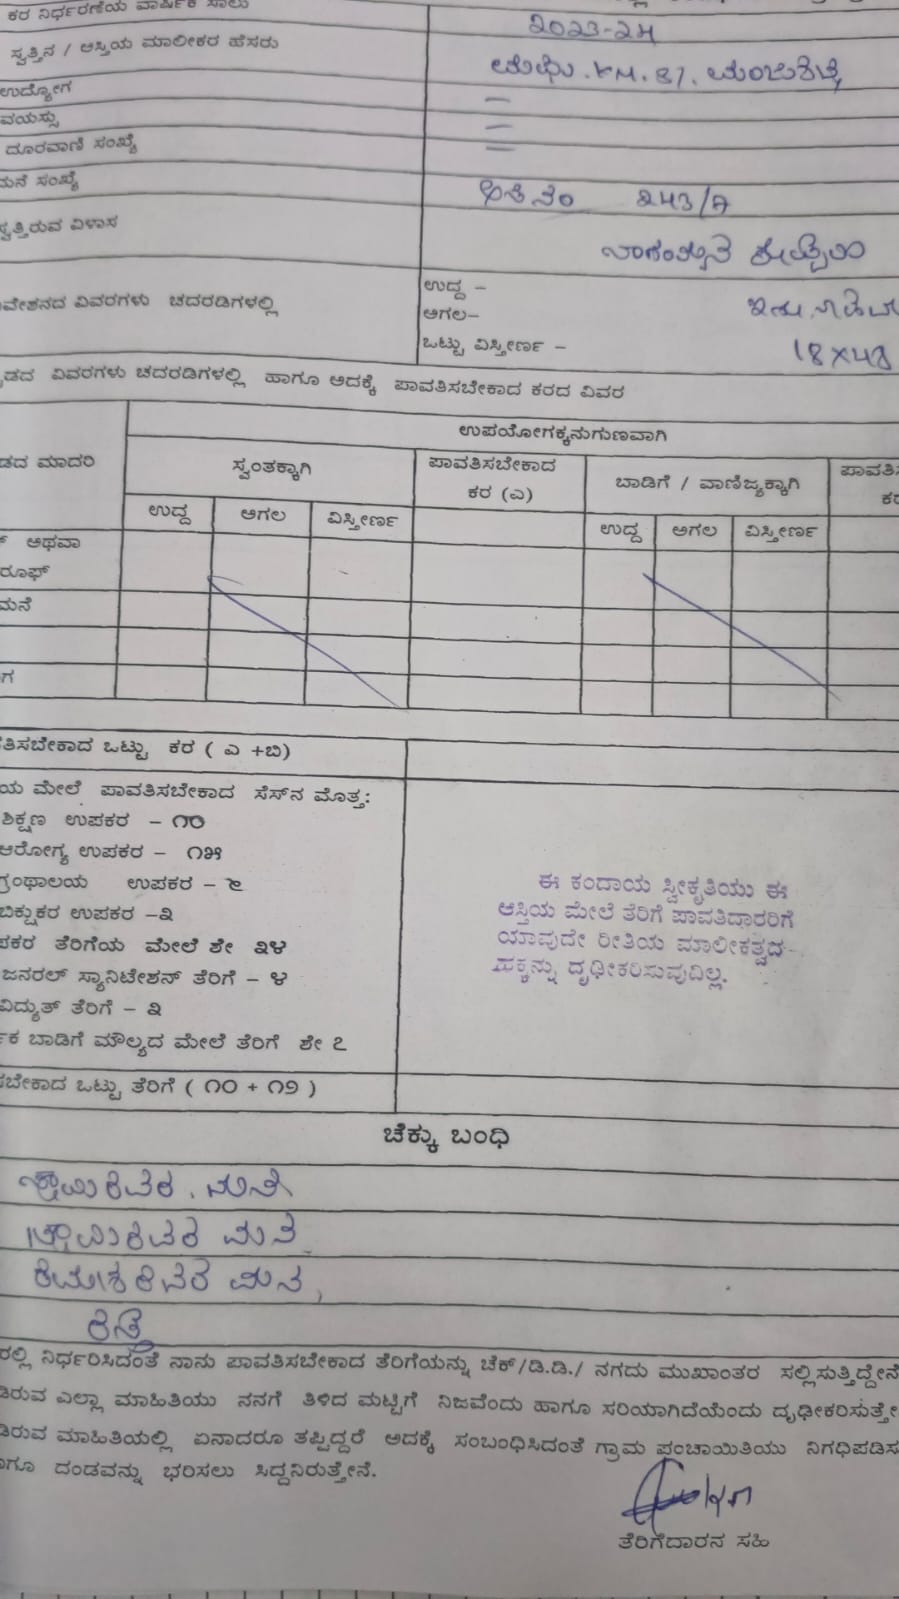 ಕರ ನಿರ್ಧರಣೆಯ ವಾರ್ಷಿಕ ಸಾಲು 2023-24
ಸ್ವತ್ತಿನ / ಆಸ್ತಿಯ ಮಾಲೀಕರ ಹೆಸರು
ಉದ್ಯೋಗ –
ವಯಸ್ಸು –
ದೂರವಾಣಿ ಸಂಖ್ಯೆ =
ಮನೆ ಸಂಖ್ಯೆ 243/A
ಸ್ವತ್ತಿರುವ ವಿಳಾಸ
ವೇಶನದ ವಿವರಗಳು ಚದರಡಿಗಳಲ್ಲಿ
ಉದ್ದ –
ಅಗಲ–
ಒಟ್ಟು ವಿಸ್ತೀರ್ಣ – 18X48
ಡದ ವಿವರಗಳು ಚದರಡಿಗಳಲ್ಲಿ ಹಾಗೂ ಅದಕ್ಕೆ ಪಾವತಿಸಬೇಕಾದ ಕರದ ವಿವರ
ಡದ ಮಾದರಿ
ಉಪಯೋಗಕ್ಕನುಗುಣವಾಗಿ
ಸ್ವಂತಕ್ಕಾಗಿ
ಪಾವತಿಸಬೇಕಾದ
ಕರ (ಎ)
ಬಾಡಿಗೆ / ವಾಣಿಜ್ಯಕ್ಕಾಗಿ
ಪಾವತಿಸ
ಕರ
ಉದ್ದ ಅಗಲ ವಿಸ್ತೀರ್ಣ ಉದ್ದ ಅಗಲ ವಿಸ್ತೀರ್ಣ
ಅಥವಾ
ರೂಫ್
ಮನೆ
ಗ
ತಿಸಬೇಕಾದ ಒಟ್ಟು ಕರ ( ಎ +ಬಿ)
ಯ ಮೇಲೆ ಪಾವತಿಸಬೇಕಾದ ಸೆಸ್‌ನ ಮೊತ್ತ:
ಶಿಕ್ಷಣ ಉಪಕರ – ೧೦
ಆರೋಗ್ಯ ಉಪಕರ – ೧೫
ಗ್ರಂಥಾಲಯ ಉಪಕರ – ೬
ಬಿಕ್ಷುಕರ ಉಪಕರ –೩
ಪಕರ ತೆರಿಗೆಯ ಮೇಲೆ ಶೇ ೩೪
ಜನರಲ್ ಸ್ಯಾನಿಟೇಶನ್ ತೆರಿಗೆ – ೪
ವಿದ್ಯುತ್ ತೆರಿಗೆ – ೩
ಕ ಬಾಡಿಗೆ ಮೌಲ್ಯದ ಮೇಲೆ ತೆರಿಗೆ ಶೇ ೭
ಈ ಕಂದಾಯ ಸ್ವೀಕೃತಿಯು ಈ
ಆಸ್ತಿಯ ಮೇಲೆ ತೆರಿಗೆ ಪಾವತಿದಾರರಿಗೆ
ಯಾವುದೇ ರೀತಿಯ ಮಾಲೀಕತ್ವದ
ಹಕ್ಕನ್ನು ದೃಢೀಕರಿಸುವುದಿಲ್ಲ.
ಸಬೇಕಾದ ಒಟ್ಟು ತೆರಿಗೆ ( ೧೦ + ೧೨ )
ಚೆಕ್ಕು ಬಂಧಿ
ಮನೆ
ಮನೆ
ಮನೆ
ರಸ್ತೆ
ರಲ್ಲಿ ನಿರ್ಧರಿಸಿದಂತೆ ನಾನು ಪಾವತಿಸಬೇಕಾದ ತೆರಿಗೆಯನ್ನು ಚೆಕ್/ಡಿ.ಡಿ./ ನಗದು ಮುಖಾಂತರ ಸಲ್ಲಿಸುತ್ತಿದ್ದೇನೆ
ಡಿರುವ ಎಲ್ಲಾ ಮಾಹಿತಿಯು ನನಗೆ ತಿಳಿದ ಮಟ್ಟಿಗೆ ನಿಜವೆಂದು ಹಾಗೂ ಸರಿಯಾಗಿದೆಯೆಂದು ದೃಢೀಕರಿಸುತ್ತೇ
ಡಿರುವ ಮಾಹಿತಿಯಲ್ಲಿ ಏನಾದರೂ ತಪ್ಪಿದ್ದರೆ ಅದಕ್ಕೆ ಸಂಬಂಧಿಸಿದಂತೆ ಗ್ರಾಮ ಪಂಚಾಯಿತಿಯು ನಿಗಧಿಪಡಿಸ
ಗೂ ದಂಡವನ್ನು ಭರಿಸಲು ಸಿದ್ದನಿರುತ್ತೇನೆ.
ತೆರಿಗೆದಾರನ ಸಹಿ